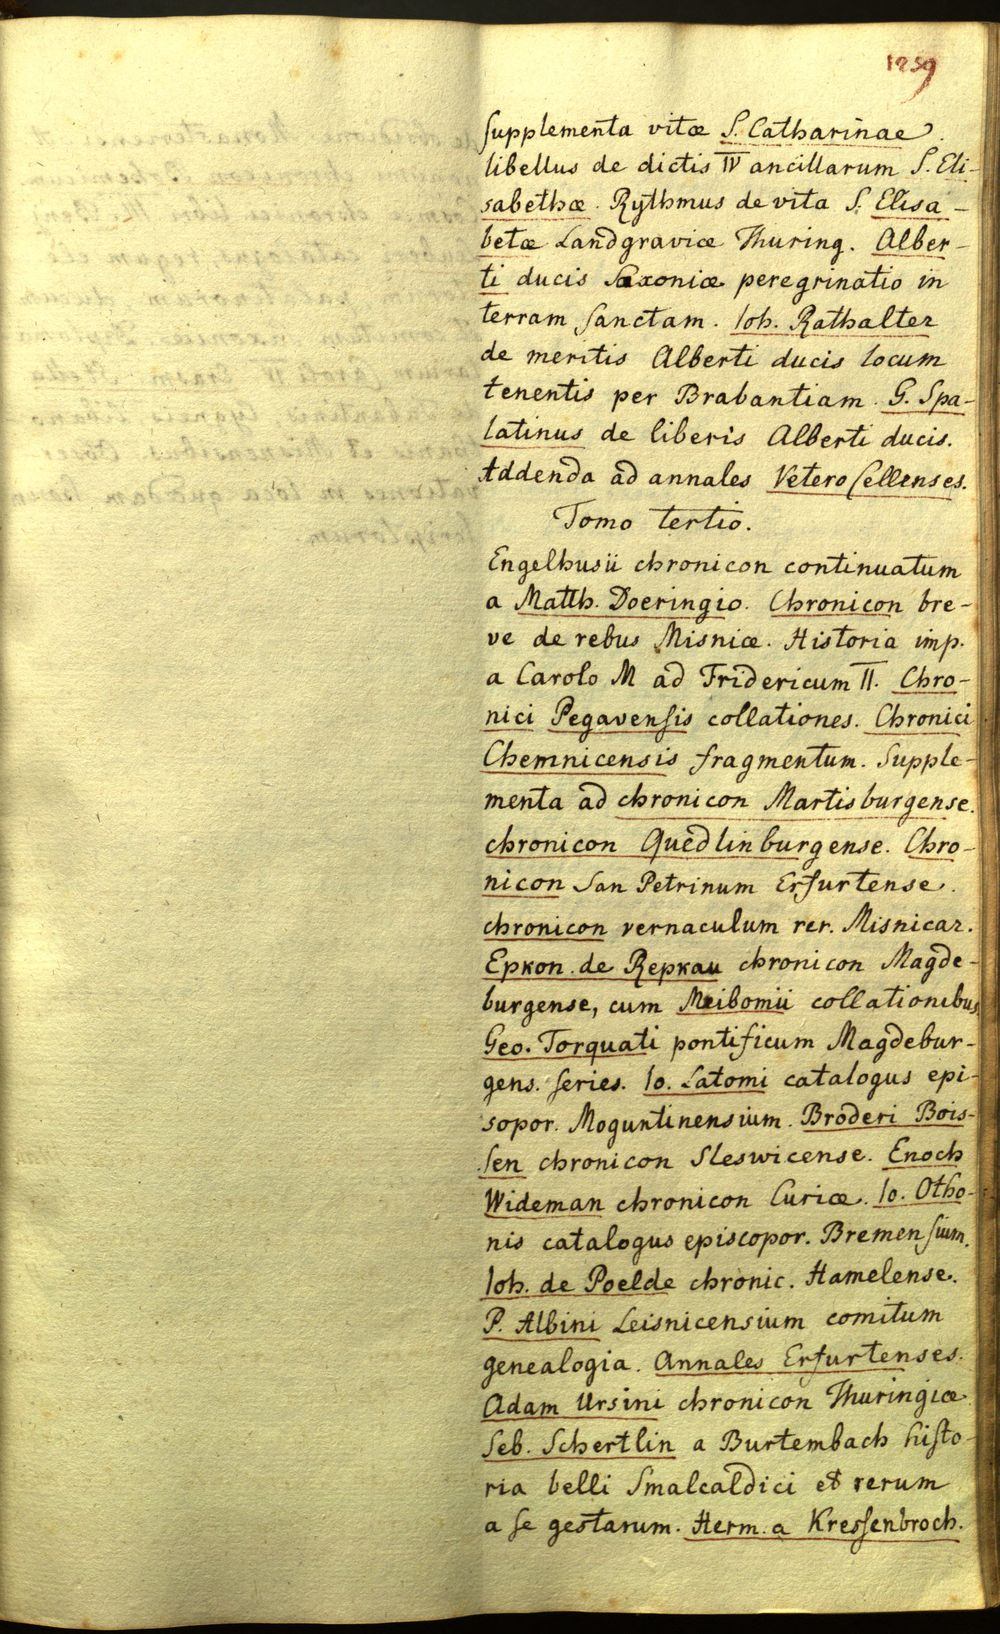 1259
supplementa vitæ S. Catharinae.
libellus de dictis IV ancillarum S. Eli-
sabethæ. Rythmus de vita S. Elisa-
betæ Landgraviæ Thuring. Alber-
ti ducis Saxoniæ peregrinatio in
terram sanctam. Ioh. Rathalter
de meritis Alberti ducis locum
tenentis per Brabantiam. G. Spa-
latinus de liberis Alberti ducis.
Addenda ad annales Vetero Cellenses.
Tomo tertio.
Engelhusii chronicon continuatum
a Matth. Doeringio. Chronicon bre-
ve de rebus Misniæ. Historia imp.
a Carolo M ad Fridericum II. Chro-
nici Pegavensis collationes. Chronici
Chemnicensis fragmentum. Supple-
menta ad chronicon Martisburgense.
chronicon Quedlinburgense. Chro-
nicon San Petrinum Erfurtense.
chronicon vernaculum rer. Misnicar.
Epkon. de Repkau chronicon Magde-
burgense, cum Meibomii collationibus
Geo. Torquati pontificum Magdebur-
gens. series. Io. Latomi catalogus epi-
sopor. Moguntinensium. Broderi Bois-
sen chronicon Sleswicense. Enoch
Wideman chronicon Curiæ. Io. Otho-
nis catalogus episcopor. Bremensium.
Ioh. de Poelde chronic. Hamelense.
P. Albini Leisnicensium comitum
genealogia. Annales Erfurtenses.
Adam Ursini chronicon Thuringiæ
Seb. Schertlin a Burtembach histo-
ria belli Smalcaldici et rerum
a se gestarum. Herm. a Kressenbroch.